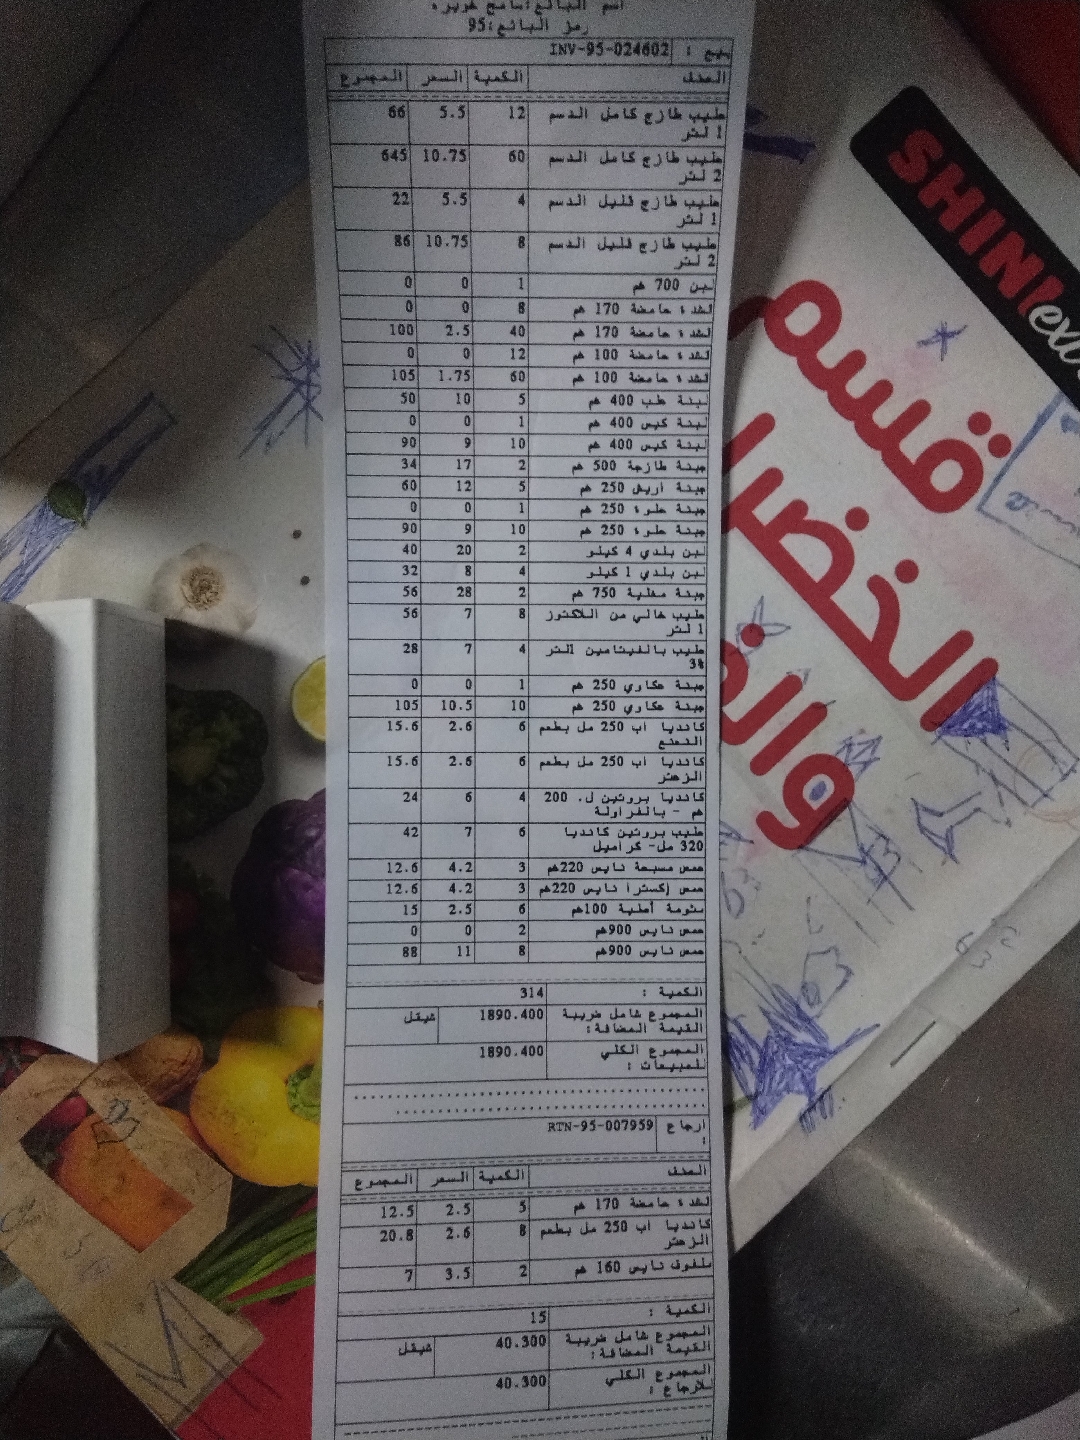 اسم البائع:سامح
رمز البائع:95
بيع : INV-95-024602
الصنف الكمية السعر المجموع
حليب طازج كامل الدسم 12 5.5 66
1 لتر
حليب طازج كامل الدسم 60 10.75 645
2 لتر
حليب طازج قليل الدسم 4 5.5 22
1 لتر
حليب طازج قليل الدسم 8 10.75 86
2 لتر
لبن 700 غم 1 0 0
قشدة حامضة 170 غم 8 0 0
قشدة حامضة 170 غم 40 2.5 100
قشدة حامضة 100 غم 12 0 0
قشدة حامضة 100 غم 60 1.75 105
لبنة علب 400 غم 5 10 50
لبنة كيس 400 غم 1 0 0
لبنة كيس 400 غم 10 9 90
جبنة طازجة 500 غم 2 17 34
جبنة أريش 250 غم 5 12 60
جبنة حلوة 250 غم 1 0 0
جبنة حلوة 250 غم 10 9 90
لبن بلدي 4 كيلو 2 20 40
لبن بلدي 1 كيلو 4 8 32
جبنة مغلية 750 غم 2 28 56
حليب خالي من اللاكتوز 8 7 56
1 لتر
حليب بالفيتامين 1لتر 4 7 28
3%
جبنة عكاوي 250 غم 1 0 0
جبنة عكاوي 250 غم 10 10.5 105
كانديا اب 250 مل بطعم 6 2.6 15.6
النعنع
كانديا اب 250 مل بطعم 6 2.6 15.6
الزعتر
كانديا بروتين ل. 200 4 6 24
غم - بالفراولة
حليب بروتين كانديا 6 7 42
320 مل- كراميل
حمص مسبحة تايس 220غم 3 4.2 12.6
حمص إكسترا تايس 220غم 3 4.2 12.6
مثومة أصلية 100غم 6 2.5 15
حمص تايس 900غم 2 0 0
حمص تايس 900غم 8 11 88
الكمية : 314
المجموع شامل ضريبة 1890.400 شيقل
القيمة المضافة:
المجموع الكلي 1890.400
للمبيعات :
ارجاع RTN-95-007959
:
الصنف الكمية السعر المجموع
قشدة حامضة 170 غم 5 2.5 12.5
كانديا اب 250 مل بطعم 8 2.6 20.8
الزعتر
ملفوف تايس 160 غم 2 3.5 7
الكمية : 15
المجموع شامل ضريبة 40.300 شيقل
القيمة المضافة:
المجموع الكلي 40.300
للارجاع :
SHINI
قسم
الخضرا